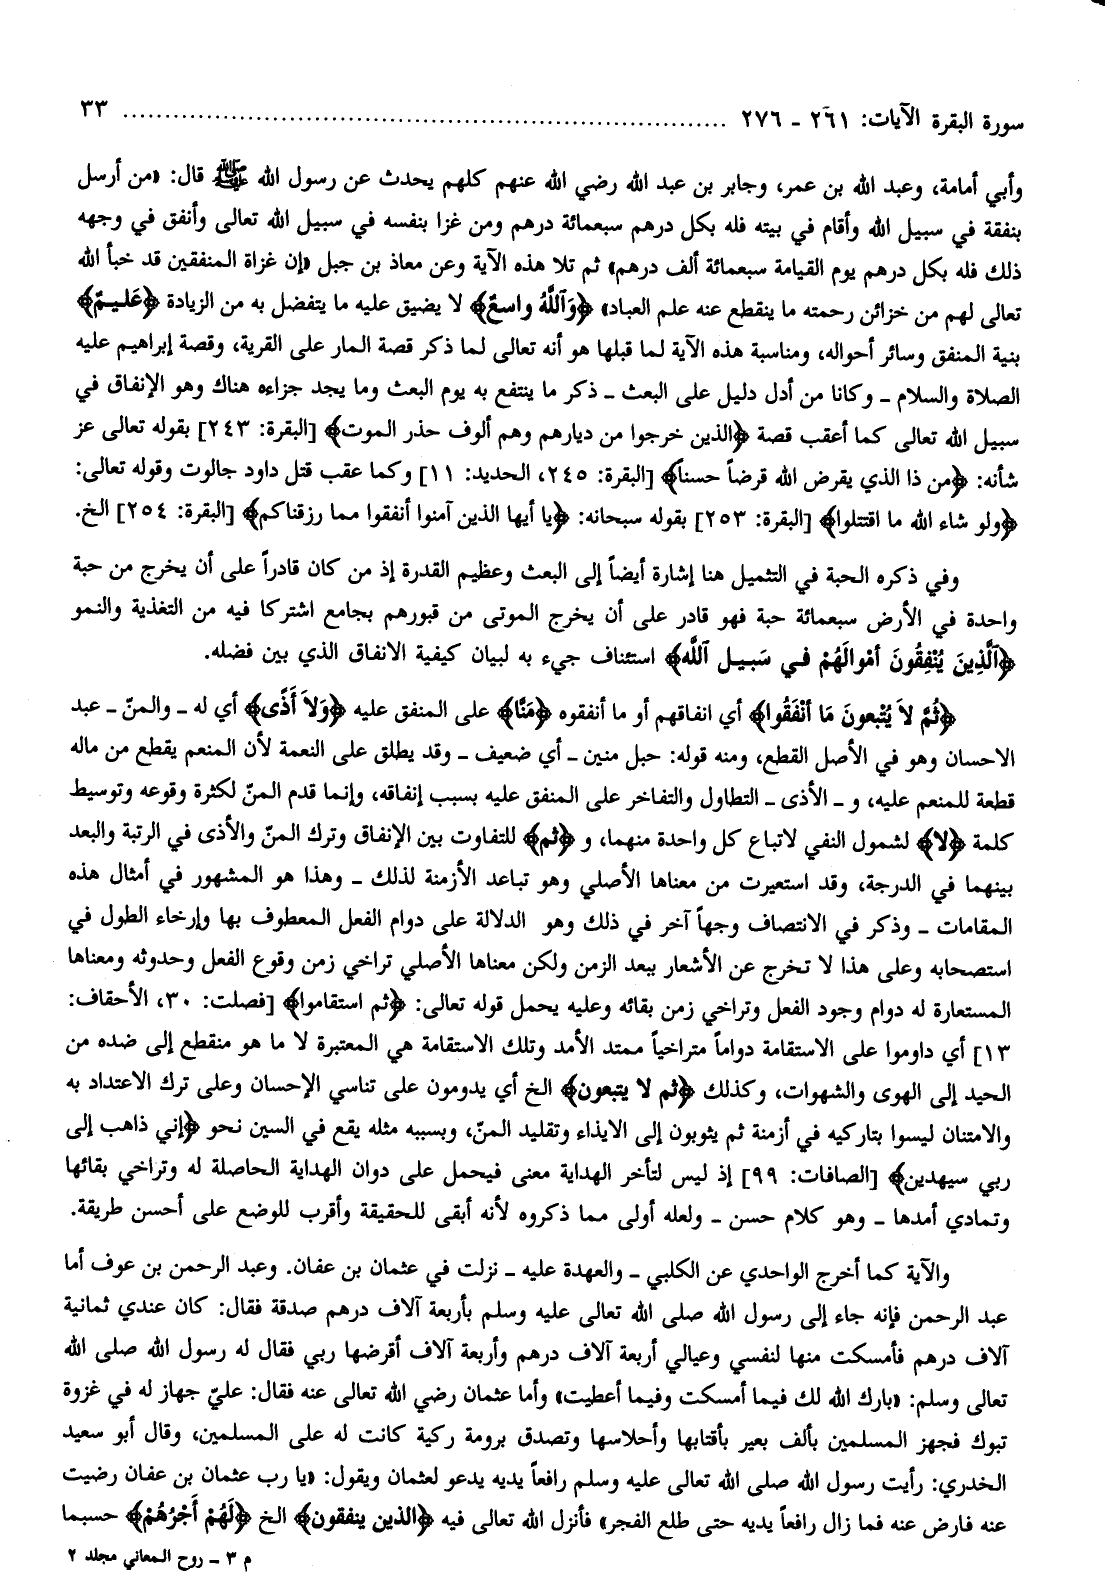 سورة البقرة الآيات: ٢٦١ ـ ٢٧٦ ........................................................................ ٣٣
وأبي أمامة، وعبد الله بن عمر، وجابر بن عبد الله رضي الله عنهم كلهم يحدث عن رسول الله ﷺ قال: «من أرسل
بنفقة في سبيل الله وأقام في بيته فله بكل درهم سبعمائة درهم ومن غزا بنفسه في سبيل الله تعالى وأنفق في وجهه
ذلك فله بكل درهم يوم القيامة سبعمائة ألف درهم» ثم تلا هذه الآية وعن معاذ بن جبل «إن غزاة المنفقين قد خبأ الله
تعالى لهم من خزائن رحمته ما ينقطع عنه علم العباد» ﴿وَٱللَّهُ واسعٌ﴾ لا يضيق عليه ما يتفضل به من الزيادة ﴿عَليمٌ﴾
بنية المنفق وسائر أحواله، ومناسبة هذه الآية لما قبلها هو أنه تعالى لما ذكر قصة المار على القرية، وقصة إبراهيم عليه
الصلاة والسلام ـ وكانا من أدل دليل على البعث ـ ذكر ما ينتفع به يوم البعث وما يجد جزاءه هناك وهو الإنفاق في
سبيل الله تعالى كما أعقب قصة ﴿الذين خرجوا من ديارهم وهم ألوف حذر الموت﴾ [البقرة: ٢٤٣] بقوله تعالى عز
شأنه: ﴿من ذا الذي يقرض الله قرضاً حسناً﴾ [البقرة: ٢٤٥، الحديد: ١١] وكما عقب قتل داود جالوت وقوله تعالى:
﴿ولو شاء الله ما اقتتلوا﴾ [البقرة: ٢٥٣] بقوله سبحانه: ﴿يا أيها الذين آمنوا أنفقوا مما رزقناكم﴾ [البقرة: ٢٥٤] الخ.
وفي ذكره الحبة في التثميل هنا إشارة أيضاً إلى البعث وعظيم القدرة إذ من كان قادراً على أن يخرج من حبة
واحدة في الأرض سبعمائة حبة فهو قادر على أن يخرج الموتى من قبورهم بجامع اشتركا فيه من التغذية والنمو
﴿ٱلَّذِينَ يُنْفِقُونَ أمْوالَهُمْ في سَبيل ٱللَّه﴾ استئناف جيء به لبيان كيفية الانفاق الذي بين فضله.
﴿ثُمَّ لاَ يَتْبعونَ مَا أنْفَقُوا﴾ أي انفاقهم أو ما أنفقوه ﴿مَنًّا﴾ على المنفق عليه ﴿وَلاَ أَذًى﴾ أي له ـ والمنّ ـ عبد
الاحسان وهو في الأصل القطع، ومنه قوله: حبل منين ـ أي ضعيف ـ وقد يطلق على النعمة لأن المنعم يقطع من ماله
قطعة للمنعم عليه، و ـ الأذى ـ التطاول والتفاخر على المنفق عليه بسبب إنفاقه، وإنما قدم المنّ لكثرة وقوعه وتوسيط
كلمة ﴿لا﴾ لشمول النفي لاتباع كل واحدة منهما، و ﴿ثم﴾ للتفاوت بين الإنفاق وترك المنّ والأذى في الرتبة والبعد
بينهما في الدرجة، وقد استعيرت من معناها الأصلي وهو تباعد الأزمنة لذلك ـ وهذا هو المشهور في أمثال هذه
المقامات ـ وذكر في الانتصاف وجهاً آخر في ذلك وهو الدلالة على دوام الفعل المعطوف بها وإرخاء الطول في
استصحابه وعلى هذا لا تخرج عن الأشعار ببعد الزمن ولكن معناها الأصلي تراخي زمن وقوع الفعل وحدوثه ومعناها
المستعارة له دوام وجود الفعل وتراخي زمن بقائه وعليه يحمل قوله تعالى: ﴿ثم استقاموا﴾ [فصلت: ٣٠، الأحقاف:
١٣] أي داوموا على الاستقامة دواماً متراخياً ممتد الأمد وتلك الاستقامة هي المعتبرة لا ما هو منقطع إلى ضده من
الحيد إلى الهوى والشهوات، وكذلك ﴿ثم لا يتبعون﴾ الخ أي يدومون على تناسي الإحسان وعلى ترك الاعتداد به
والامتنان ليسوا بتاركيه في أزمنة ثم يثوبون إلى الايذاء وتقليد المنّ، وبسببه مثله يقع في السين نحو ﴿إني ذاهب إلى
ربي سيهدين﴾ [الصافات: ٩٩] إذ ليس لتأخر الهداية معنى فيحمل على دوان الهداية الحاصلة له وتراخي بقائها
وتمادي أمدها ـ وهو كلام حسن ـ ولعله أولى مما ذكروه لأنه أبقى للحقيقة وأقرب للوضع على أحسن طريقة.
والآية كما أخرج الواحدي عن الكلبي ـ والعهدة عليه ـ نزلت في عثمان بن عفان. وعبد الرحمن بن عوف أما
عبد الرحمن فإنه جاء إلى رسول الله صلى الله تعالى عليه وسلم بأربعة آلاف درهم صدقة فقال: كان عندي ثمانية
آلاف درهم فأمسكت منها لنفسي وعيالي أربعة آلاف درهم وأربعة آلاف أقرضها ربي فقال له رسول الله صلى الله
تعالى وسلم: «بارك الله لك فيما أمسكت وفيما أعطيت» وأما عثمان رضي الله تعالى عنه فقال: عليّ جهاز له في غزوة
تبوك فجهز المسلمين بألف بعير بأقتابها وأحلاسها وتصدق برومة ركية كانت له على المسلمين، وقال أبو سعيد
الخدري: رأيت رسول الله صلى الله تعالى عليه وسلم رافعاً يديه يدعو لعثمان ويقول: «يا رب عثمان بن عفان رضيت
عنه فارض عنه فما زال رافعاً يديه حتى طلع الفجر» فأنزل الله تعالى فيه ﴿الذين ينفقون﴾ الخ ﴿لَهُمْ أَجْرُهُمْ﴾ حسبما
م ٣ ـ روح المعاني مجلد ٢